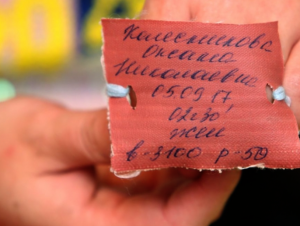 Колесникова
Оксана
Николаевна
05 09 17
02ч30'
жен
в-3100 р-50